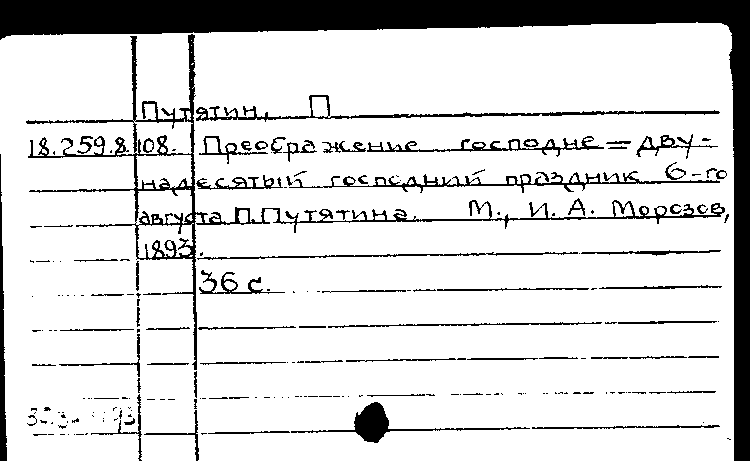 Путятин, П
18.259.8.108. Преображение господне = дву-
надесятый господний праздник 6-го
августа П.Путятина. М., И. А. Морозов,
1893.
36 с.